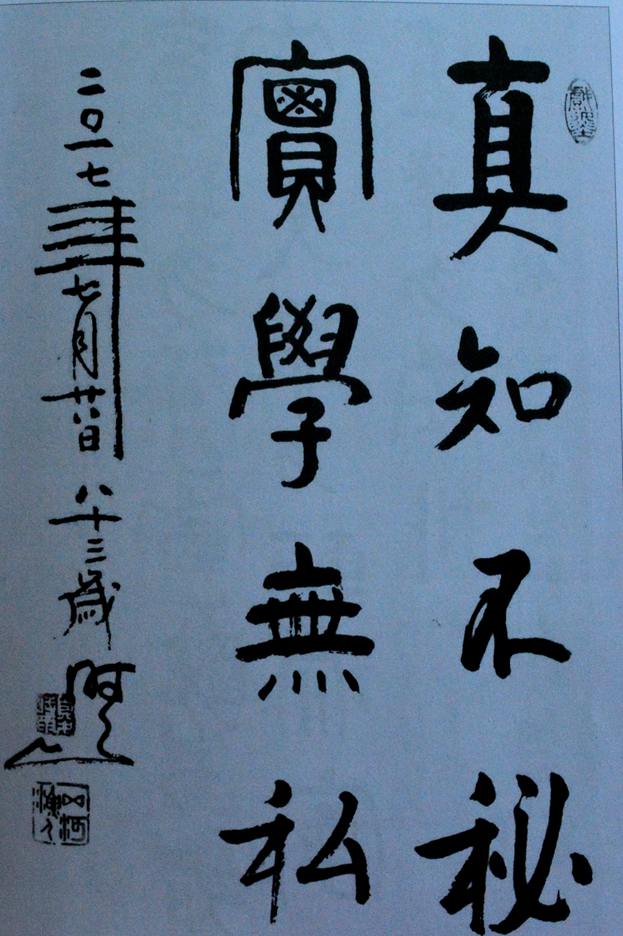 真知不秘
實學無私
二〇一七年七月廿八日 八十三歲